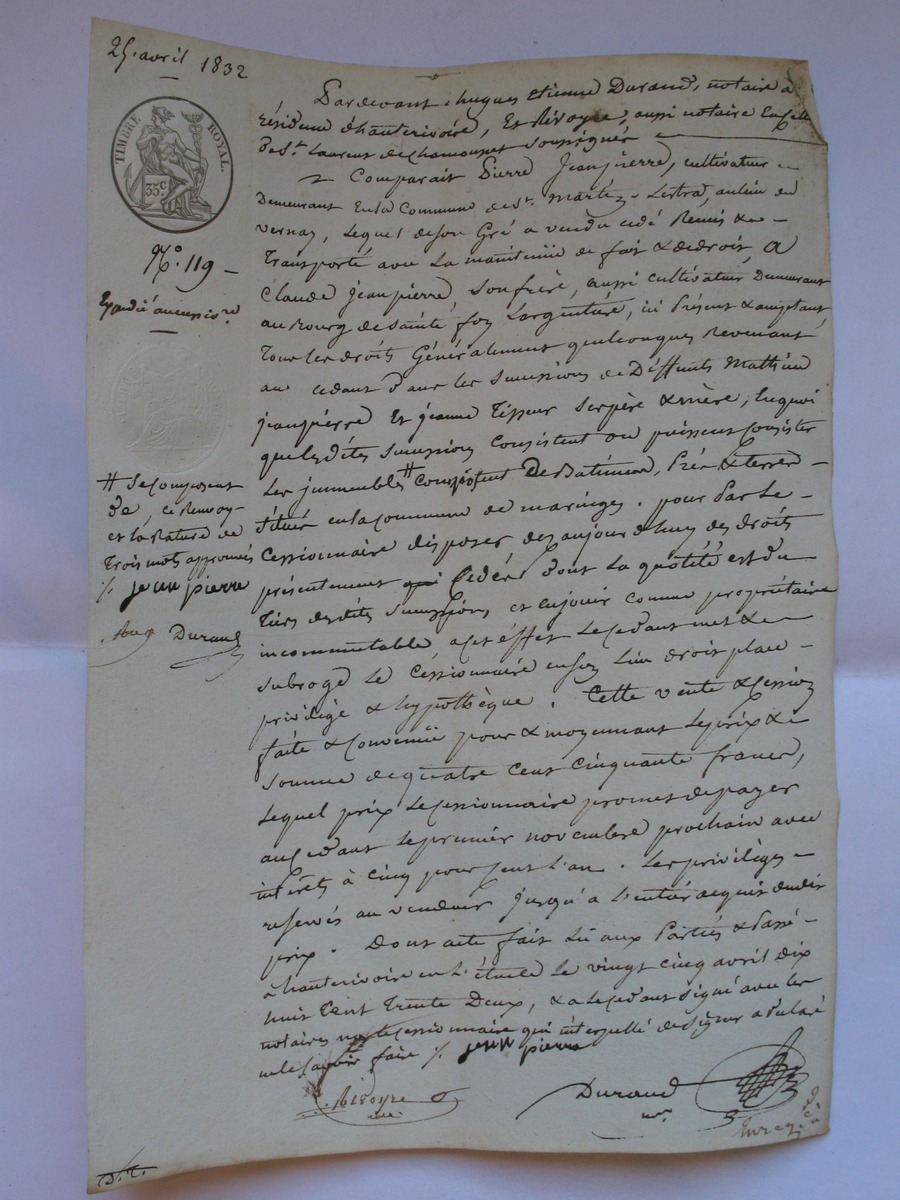 25. avril 1832
TIMBRE ROYAL.
35c
N.o 119 —
Expédié au cessio.re
Pardevant hugues Etienne Durand, notaire à
résidence d'hauterivoire, Et Rivoyre, aussi notaire En celle
De St. Laurent de chamousset soussignés
Comparait Pierre Jeanpierre, cultivateur
Demeurant En la Commune de St. Martin-Lestra, au lieu du
vernay, Lequel de son Gré a vendu cédé Remis &
Transporté avec La maintenüe de fait & de droit, a
Claude Jeanpierre, Son frère, aussi cultivateur Demeurant
au Bourg de Sainte foy L'argentière, ici Présent & acceptant,
Tous les droits Généralement quelconques Revenant
au cédant dans les Successions de Déffunts Mathieu
jeanpierre Et jeanne Tisseur Ses père & mère, En quoi
que lesdites Successions Consistent ou puissent Consister
Les immeubles # Consistent De Batiments, Prés & terres
situés en la commune de maringes. pour Par Le
Cessionnaire disposer dès aujourd'huy des droits
présentement Cédés dont La quotité est du
tiers desdites Successions et en jouir comme propriétaire
incommutable, a cet éffet Le cédant met &
subroge Le Cessionnaire en son Lieu droit place
privilège & hypothèque. Cette vente & cession
faite & Convenüe pour & moyennant Le prix &
Somme de quatre cent cinquante francs,
Lequel prix Le cessionnaire promet de payer
au cédant Le premier novembre prochain avec
intérêts à cinq pour cent L'an. Les privilèges
reservés au vendeur jusqu'a L'entier acquit dudit
prix. Dont acte fait Lu aux Parties & Passé
à hauterivoire en L'étude le vingt cinq avril dix
huit Cent Trente Deux, & a Le cédant signé avec les
notaires non le cessionnaire qui interpellé de signer a déclaré
ne le savoir faire /. jean pierre
# Se composent
De, ce Renvoy
et la Rature de
Trois mots approuvés
/. jean pierre
Durand
Rivoyre
nre
Durand
nre